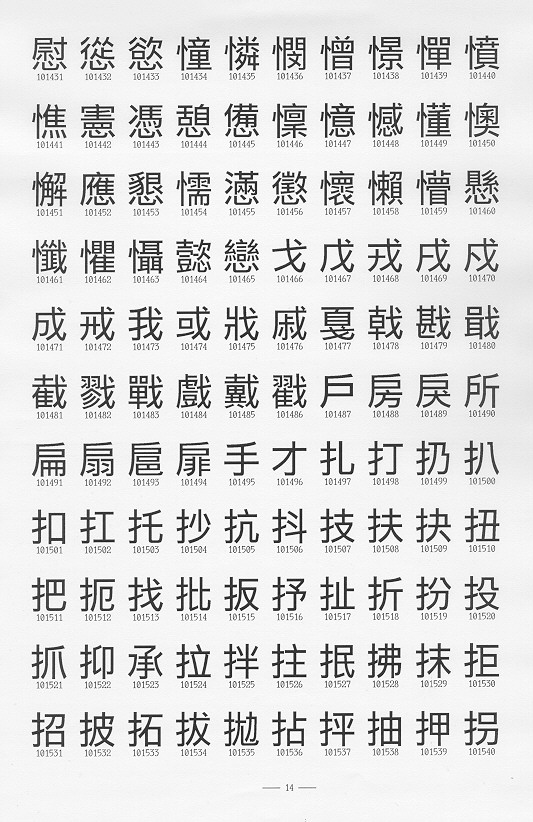 慰慫慾憧憐憫憎憬憚憤
101431 101432 101433 101434 101435 101436 101437 101438 101439 101440
憔憲憑憩憊懍憶憾懂懊
101441 101442 101443 101444 101445 101446 101447 101448 101449 101450
懈應懇懦懣懲懷懶懵懸
101451 101452 101453 101454 101455 101456 101457 101458 101459 101460
懺懼懾懿戀戈戊戎戌戍
101461 101462 101463 101464 101465 101466 101467 101468 101469 101470
成戒我或戕戚戛戟戡戢
101471 101472 101473 101474 101475 101476 101477 101478 101479 101480
截戮戰戲戴戳戶房戾所
101481 101482 101483 101484 101485 101486 101487 101488 101489 101490
扁扇扈扉手才扎打扔扒
101491 101492 101493 101494 101495 101496 101497 101498 101499 101500
扣扛托抄抗抖技扶抉扭
101501 101502 101503 101504 101505 101506 101507 101508 101509 101510
把扼找批扳抒扯折扮投
101511 101512 101513 101514 101515 101516 101517 101518 101519 101520
抓抑承拉拌拄抿拂抹拒
101521 101522 101523 101524 101525 101526 101527 101528 101529 101530
招披拓拔拋拈抨抽押拐
101531 101532 101533 101534 101535 101536 101537 101538 101539 101540
— 14 —